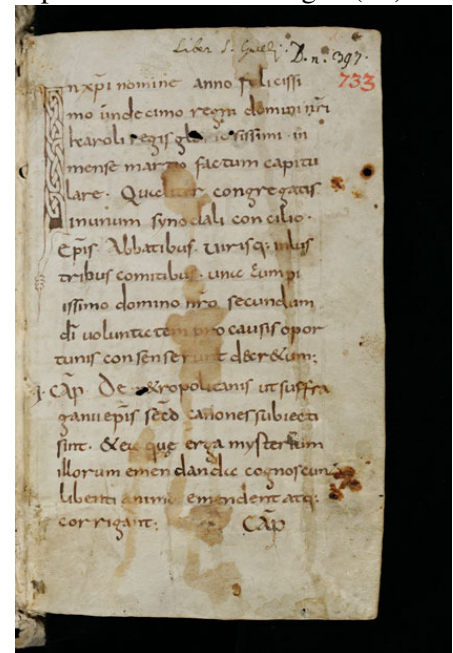 Liber S. Galli. D. n. 397.
733
In xpi nomine anno felicissi
mo undecimo regni domini nr̄i
karoli regis gloriosissimi in
mense martio factum capitu
lare. Qualiter congregatis
in unum synodali concilio.
ep̄is. Abbatibus. virisq; inlus
tribus comitibus. una cum pi
issimo domino nr̄o secundum
dī voluntatem pro causis opor
tunis consenserunt decretum;
I. Cap̄ De metropolitanis ut suffra
ganii ep̄is sec̄d canones subiecti
sint. &ea que erga mysterium
illorum emendanda cognoscun
libenti animo emendent atq;
corrigant; Cap̄